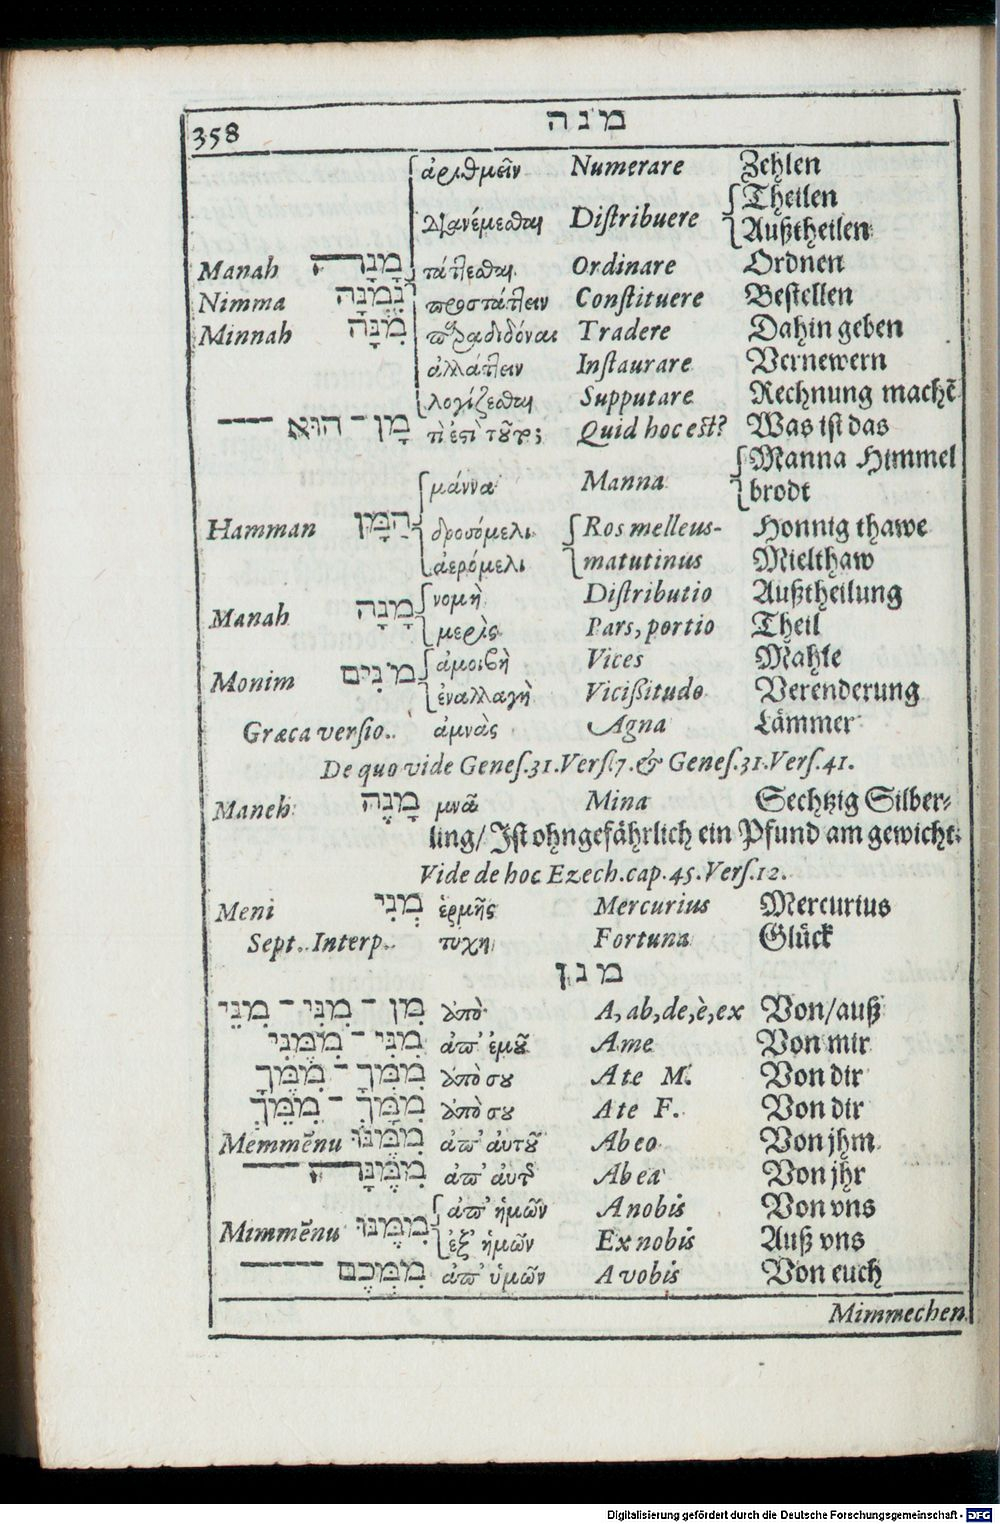 358 מנה
ἀριθμεῖν Numerare Zehlen
Theilen
διανέμεσθαι Diſtribuere Außtheilen
Manah מָנָה τάττεσθαι Ordinare Ordnen
Nimma נִמְנָה προστάττειν Conſtituere Beſtellen
Minnah מִנָּה παραδιδόναι Tradere Dahin geben
ἀλλάττειν Inſtaurare Vernewern
λογίζεσθαι Supputare Rechnung machē
מָן־הוּא τὶ ἐστὶ τοῦτο; Quid hoc eſt? Was iſt das
Manna Himmel
μάννα Manna brodt
Hamman הַמָּן δροσόμελι Ros melleus- Honnig thawe
ἀερόμελι matutinus Mielthaw
νομὴ Diſtributio Außtheilung
Manah מָנָה μερὶς Pars, portio Theil
ἀμοιβὴ Vices Mahle
Monim מֹנִים ἐναλλαγὴ Vicißitudo Verenderung
Græca verſio.. ἀμνὰς Agna Lämmer
De quo vide Geneſ.31.Verſ.7.& Geneſ.31.Verſ.41.
Maneh מָנֶה μνᾶ Mina Sechtzig Silber-
ling/ Iſt ohngefährlich ein Pfund am gewicht.
Vide de hoc Ezech.cap.45.Verſ.12.
Meni מְנִי ἑρμῆς Mercurius Mercurius
Sept.. Interp.. τύχη Fortuna Glück
מנן
מִן־מִנִּי־מִנֵּי ἀπὸ A, ab, de, è, ex Von/auß
מִנִּי־מִמֶּנִּי ἀπ' ἐμοῦ A me Von mir
מִמְּךָ־מִמֶּךָּ ἀπὸ σου A te M. Von dir
מִמָּךְ־מִמֵּךְ ἀπὸ σου A te F. Von dir
Memmēnu מִמֶּנּוּ ἀπ' αὐτοῦ Ab eo Von jhm
מִמֶּנָּה ἀπ' αὐτῆς Ab ea Von jhr
ἀπ' ἡμῶν A nobis Von vns
Mimmēnu מִמֶּנּוּ ἐξ ἡμῶν Ex nobis Auß vns
מִמְּכֶם ἀπ' ὑμῶν A vobis Von euch
Mimmechen
Digitalisierung gefördert durch die Deutsche Forschungsgemeinschaft - DFG